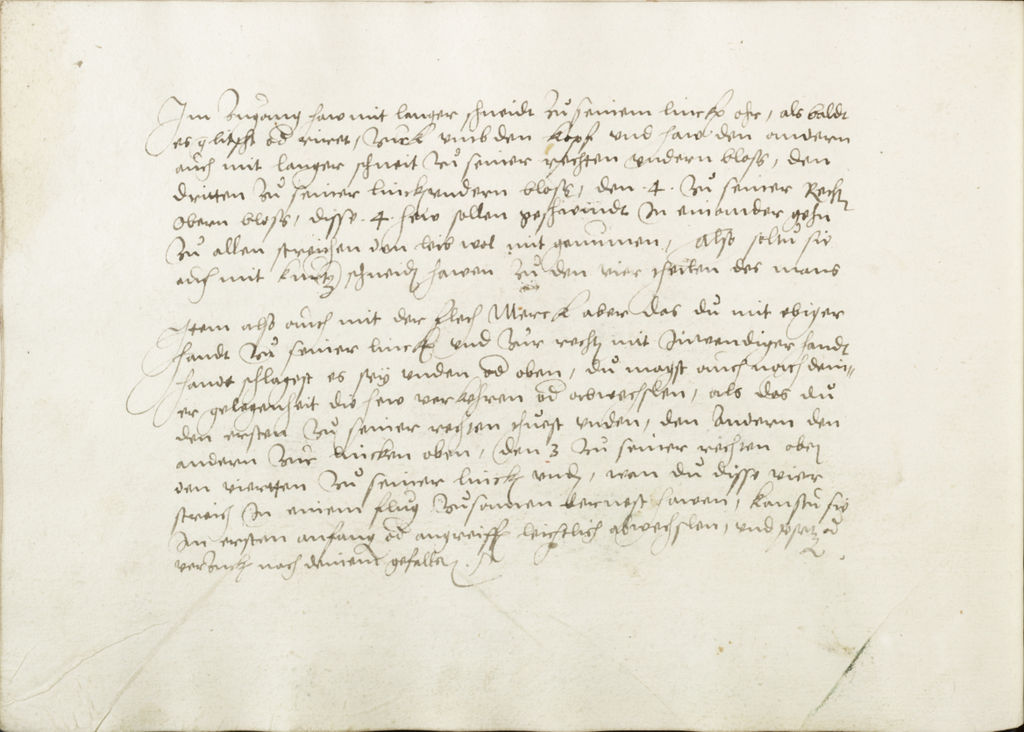 Im Zugang haw mit langer schneidt Zu seinem linckh ohr, als baldt
es glitscht od rüret, Zuck umb den kopf und haw den andern
auch mit langer schneit Zu seiner rechten undern bloss, den
dritten Zu seiner linckh undern bloss, den .4. Zu seiner Recht
Obern bloss, disse .4. hew sollen geschwindt In einander gehn
Zu allen streichen den leib wol mit genumen, also soltu sie
auch mit kurtz schneid hawen Zu den vier theilen des mans
Item also auch mit der flech Merck aber das du mit ebiger
handt Zu seiner linckh und Zur recht mit Inwendiger handt
hand schlagest es sey unden od oben, du magst auch nach dein=
er gelegenheit die hew verkehren od abwechslen, als das du
den ersten Zu seiner rechten thuest unden, den Andern den
andern Zur lincken oben, den 3 Zu seiner rechten oben
den vierten Zu seiner linckh und, wan du disse vier
streich In einem flug Zusamen lernest hawen, kanstu sie
In ersten anfang od angreiff leichtlich abwechslen, und
verZuckh nach deinem gefallen.